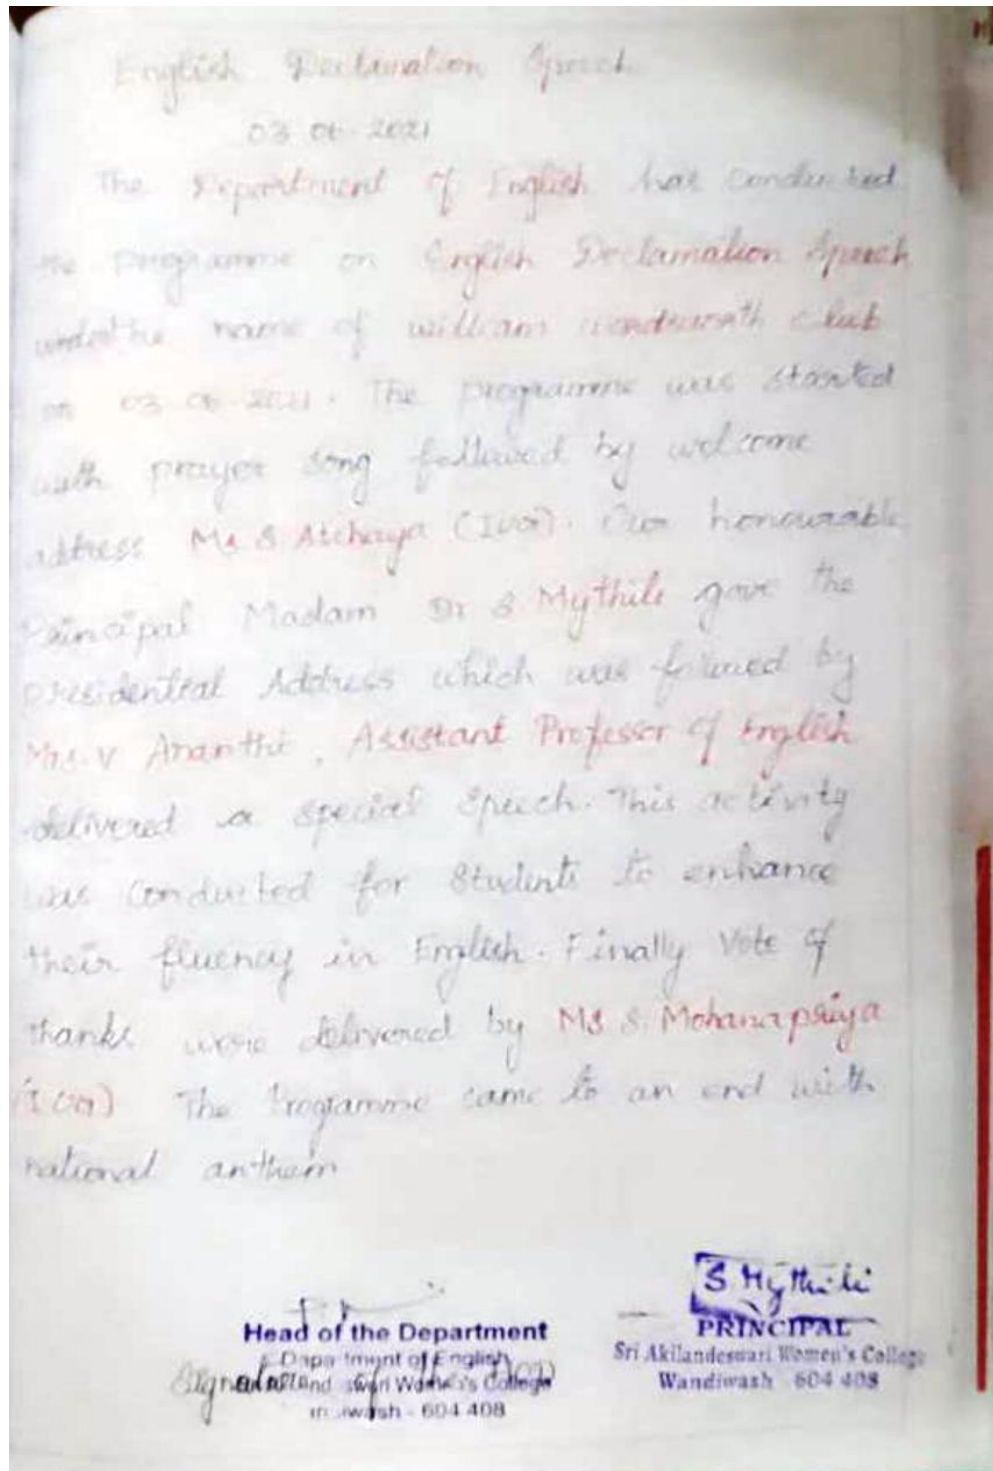 English Declamation Speech
03.06.2021
The Department of English has conducted
the programme on English Declamation Speech
under the name of william wordsworth club
on 03.06.2021. The programme was started
with prayer song followed by welcome
address Ms S Atchaya (I UG). Our honourable
Principal Madam Dr S Mythili gave the
presidential Address which was followed by
Mrs. V Ananthi, Assistant Professor of English
delivered a special speech. This activity
was conducted for students to enhance
their fluency in English. Finally Vote of
thanks were delivered by Ms S. Mohanapriya
(I UG) The Programme came to an end with
national anthem
S Mythili
Head of the Department
PRINCIPAL
Department of English
Sri Akilandeswari Women's College
Signature of the HOD
Wandiwash 604 408
Women's College
604 408